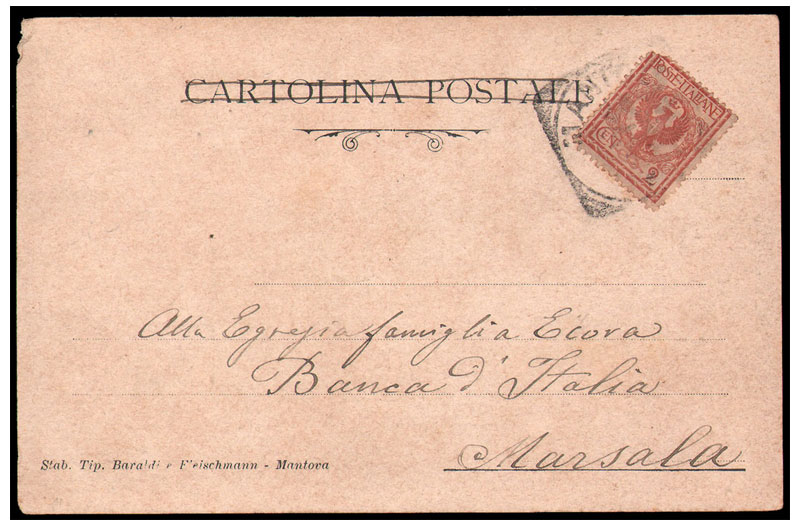 CARTOLINA POSTALE
POSTE·ITALIANE
CENT. 2
Alla Egregia famiglia Ecora
Banca d'Italia
Marsala
Stab. Tip. Baraldi e Fleischmann - Mantova